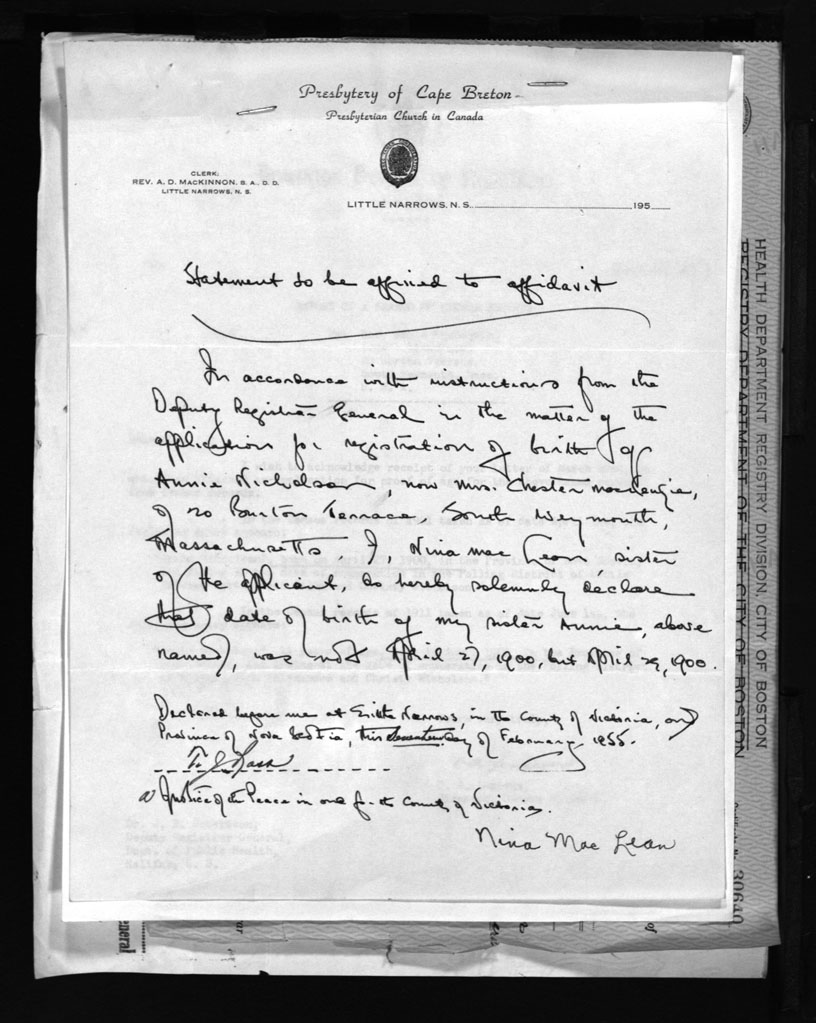 Presbytery of Cape Breton
Presbyterian Church in Canada
CLERK:
REV. A. D. MACKINNON, B. A., D. D.
LITTLE NARROWS, N. S.
LITTLE NARROWS, N. S. 195
Statement to be affixed to affidavit
In accordance with instructions from the
Deputy Registrar General in the matter of the
application for registration of birth of
Annie Nicholson, now Mrs. Chester MacKenzie,
of 20 Burton Terrace South Weymouth,
Massachusetts, I, Nina Mac Lean sister
of the applicant, do hereby solemnly declare
that date of birth of my sister Annie, above
named, was not April 27, 1900, but April 29, 1900.
Declared before me at Little Narrows, in the County of Victoria, and
Province of Nova Scotia, this day of February 1955.
Ross
a Justice of the Peace in and for the County of Victoria.
Nina Mac Lean
HEALTH DEPARTMENT REGISTRY DIVISION, CITY OF BOSTON
REGISTRY DEPARTMENT OF THE CITY OF BOSTON
30640
Deputy Registrar General,
Dept. of Public Health,
Halifax, N. S.
eneral